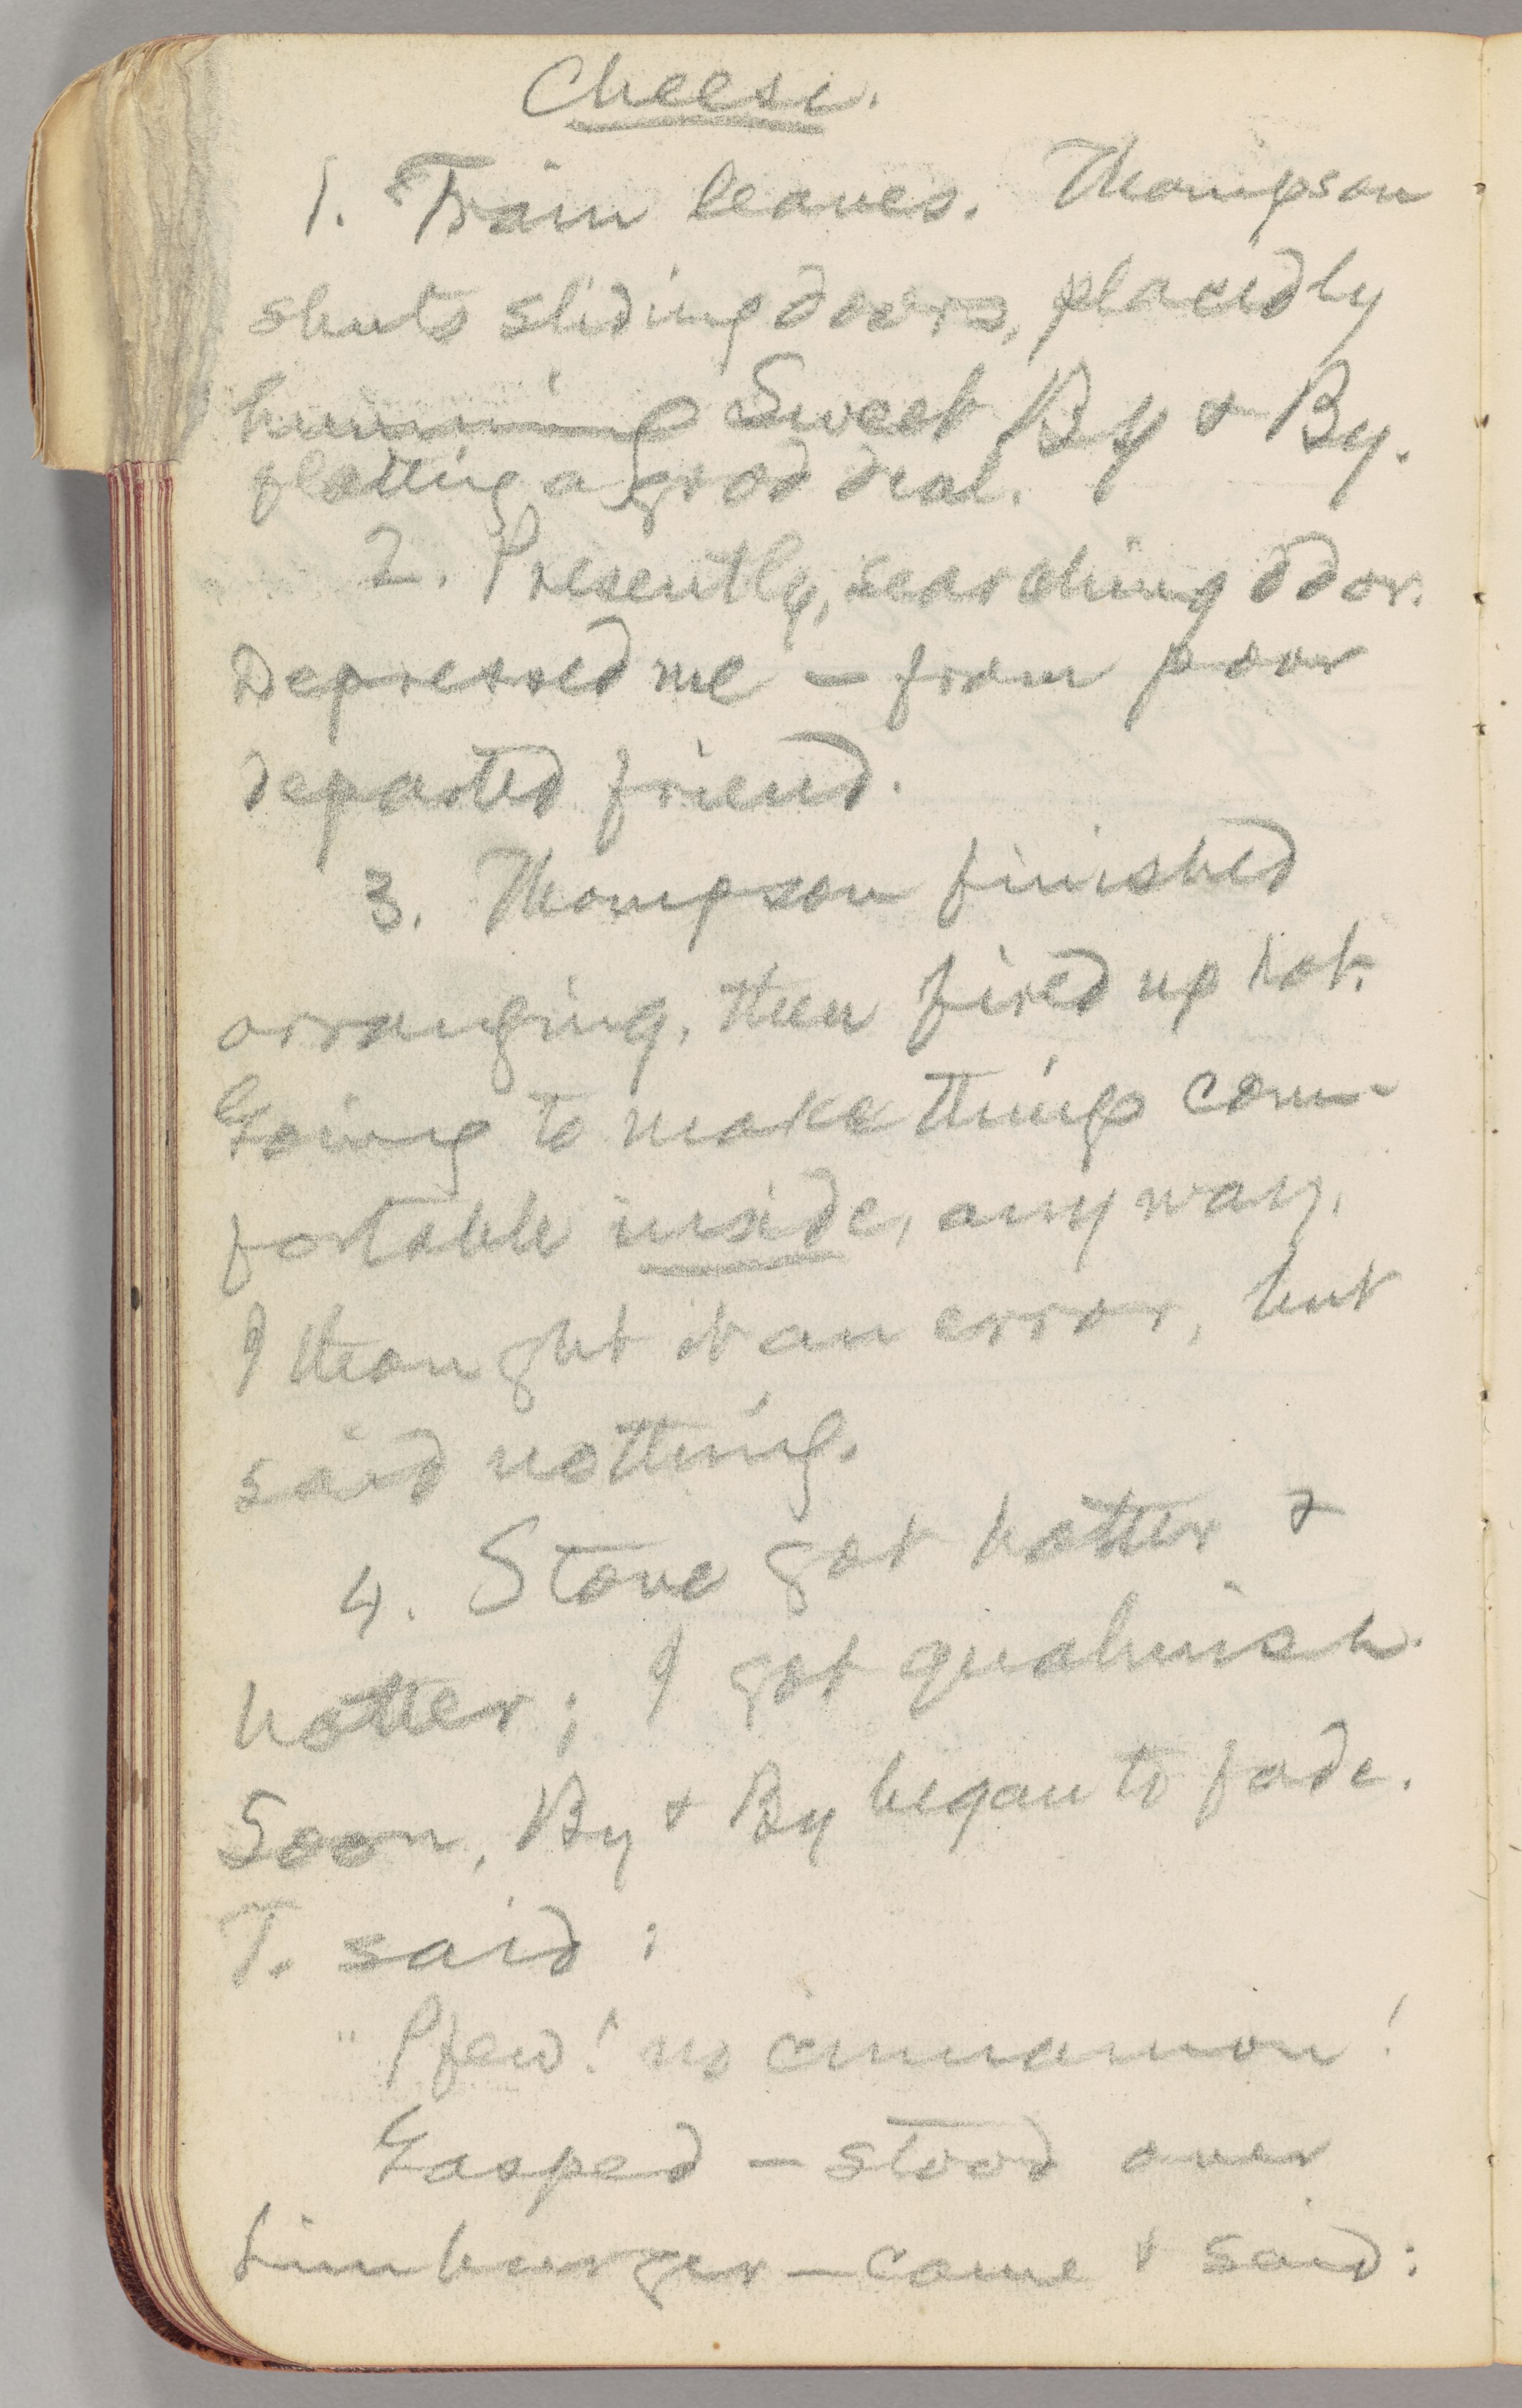 Cheese.
1. Train leaves. Thompson
shuts sliding doors, placidly
humming Sweet By & By.
flatting a good deal.
2. Presently, searching odor.
Depressed me — from poor
departed friend.
3. Thompson finished
arranging, then fired up hot.
Going to make things com-
fortable inside, anyway.
I thought it an error, but
said nothing.
4. Stove got hotter &
hotter; I got qualmish.
Soon, By & By began to fade.
T. said:
"Pfew! no cinnamon!
Gasped — stood over
Limburger — came & said: